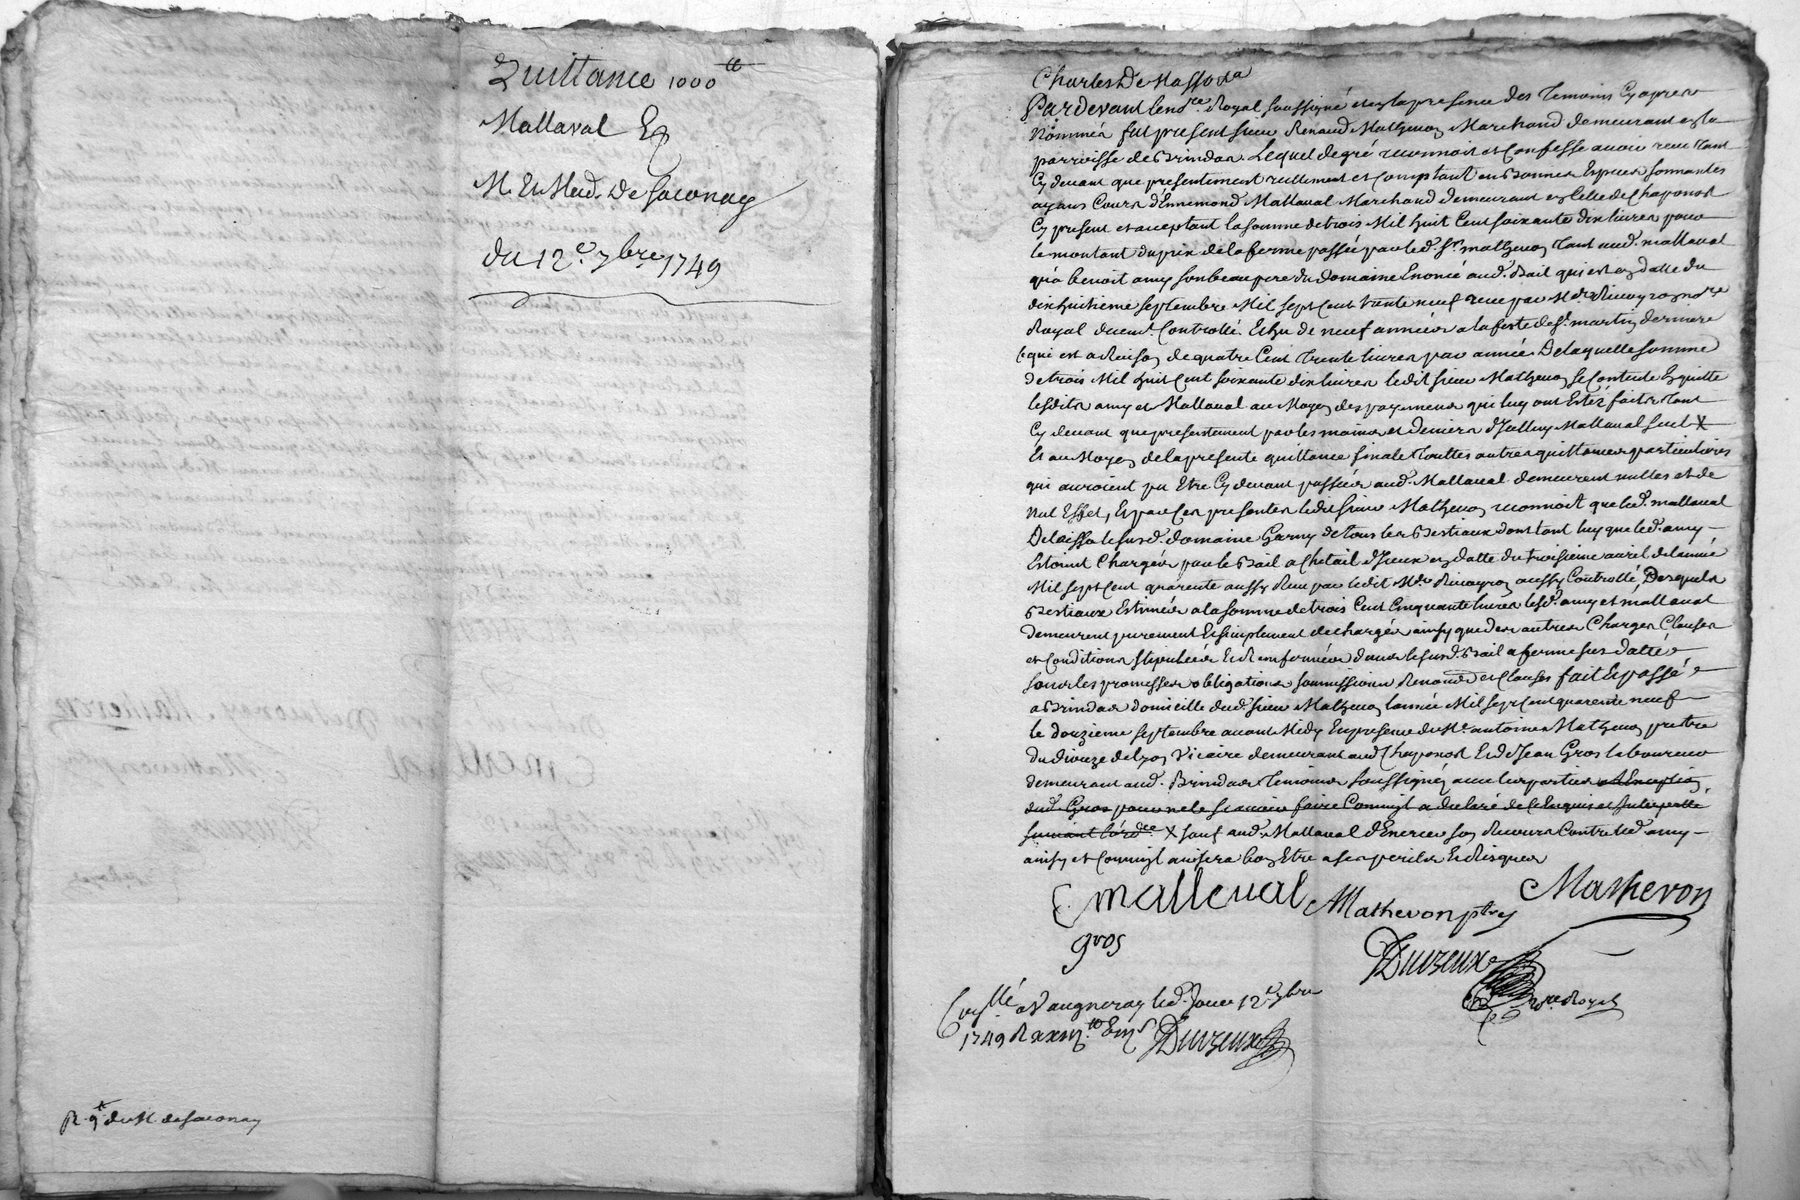 Quittance 1000 ₶
Mallaval Et
M. Et Mad. De Saconay
du 12.e 7bre 1749
R. 9 ₶ de M. de Saconay
Charles De Masso &a
Pardevant le no.re Royal soussigné et en la presence des Temoins Cy apres
Nommés fut present sieur Renaud Mathevon Marchand demeurant en la
parroisse de Brindas. Lequel de gré reconnoit et Confesse avoir receu tant
Cy devant que presentement reellement et Comptant en Bonnes Especes sonnantes
ayans Cours d'Ennemond Mallaval Marchand demeurant en Celle de Chaponost
Cy present et acceptant la somme de trois Mil huit Cent soixante dix livres pour
le montant du prix de la ferme passée par led. Sr. Mathevon tant aud. Mallaval
qu'a benoit amy son beaupere du domaine Enoncé aud. Bail qui est en datte du
dix huitieme septembre Mil sept Cent trente neuf receu par Me no.re
Royal duement Controllé. Echu de neuf années a la feste de St. martin derniere
Ce qui est a Raison de quatre Cent Trente livres par année De laquelle somme
de trois Mil huit Cent soixante dix livres ledit sieur Mathevon se Contente Et quitte
lesdits amy et Mallaval au Moyen des payemens qui luy ont Estés faits tant
Cy devant que presentement par les mains et deniers d'Icelluy Mallaval seul X
Et au Moyen de la presente quittance finale Touttes autres quittances particulieres
qui auroient pu Etre Cy devant passées aud. Mallaval demeurent nulles et de
Nul Effet, Et par Ces presentes ledit sieur Mathevon reconnoit que led. mallaval
Delaisse le susd. domaine Garny de tous les Bestiaux dont tant luy que led. amy
Estoient Chargés par le Bail a Chetail d'Iceux en datte du troisieme avril de l'année
Mil sept Cent quarente aussy Receu par ledit Me aussy Controllé, Desquels
Bestiaux Estimés a la somme de trois Cent Cinquante livres lesd. amy et mallaval
demeurent purement Et simplement dechargés ainsy que des autres Charges Clauses
et Conditions stipulées Et Renfermées dans le susd. Bail a ferme sus datté
sous les promesses obligations soumissions Renon.ons et Clauses fait Et passé
a Brindas domicille dud. sieur Mathevon l'année Mil sept Cent quarente neuf
le douzieme septembre avant Midy En presence de Me. antoine Mathevon pretre
du dioceze de Lyon Vicaire demeurant aud. Chaponost Et de Jean Gros laboureur
demeurant aud. Brindas Temoins soussignés avec les parties a l'Exception
dud. Gros pour ne le scavoir faire Comm'il a declaré de Ce Enquis et Interpellé
suivant l'ord.ce X sauf aud. Mallaval d'Exercer son Recours Contre led. amy
ainsy et Comm'il avisera bon Etre a ses perils Et Risques
E malleval Mathevon ptre Mathevon
gros
Duvzeux
no.re Royal
Con.llé a Vaugneray led. Jour 12.e 7bre
1749 R Duvzeux